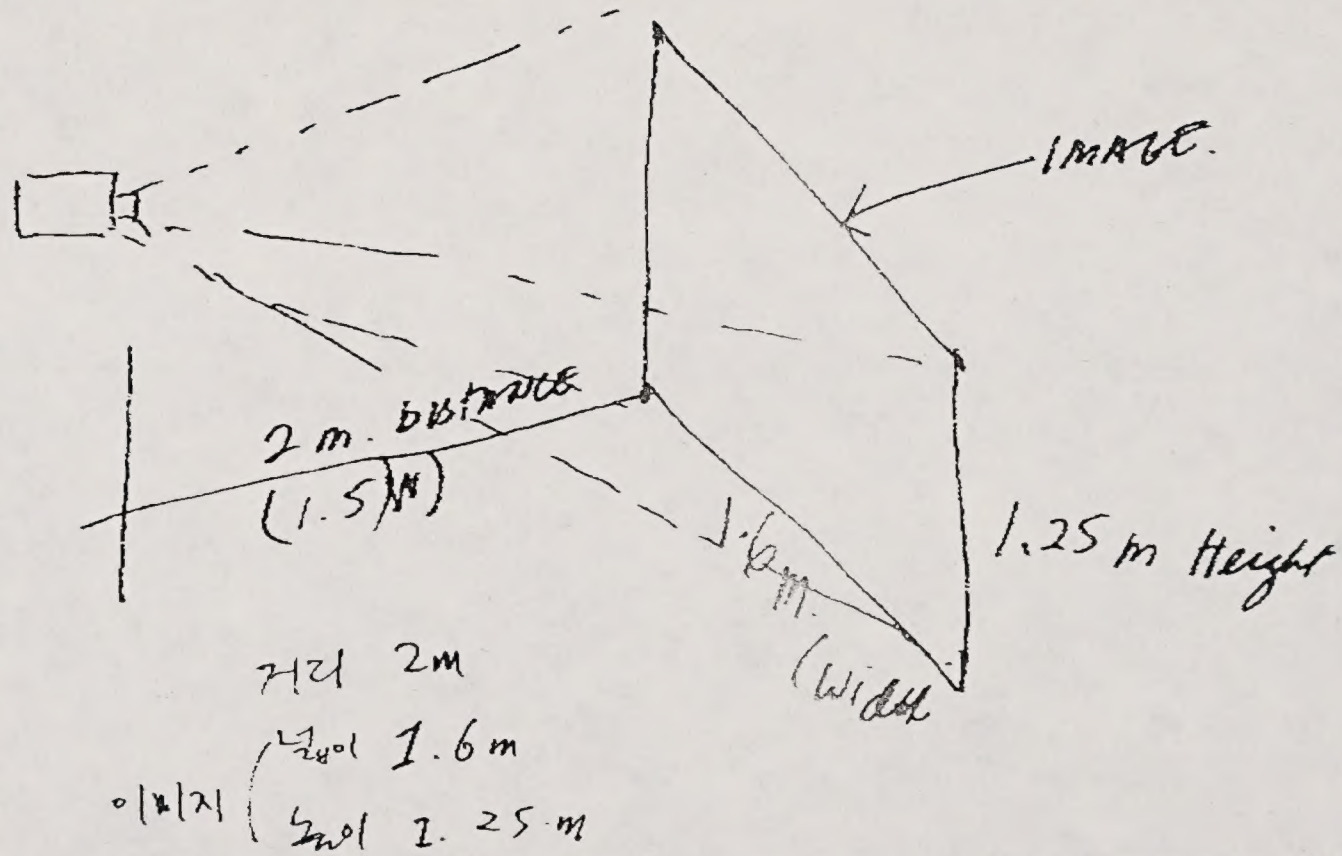 IMAGE.
2 m. DISTANCE
(1.5)
1.6 m.
(Width
1.25 m Height
거리 2m
넓이 1.6 m
이미지
높이 1.25 m